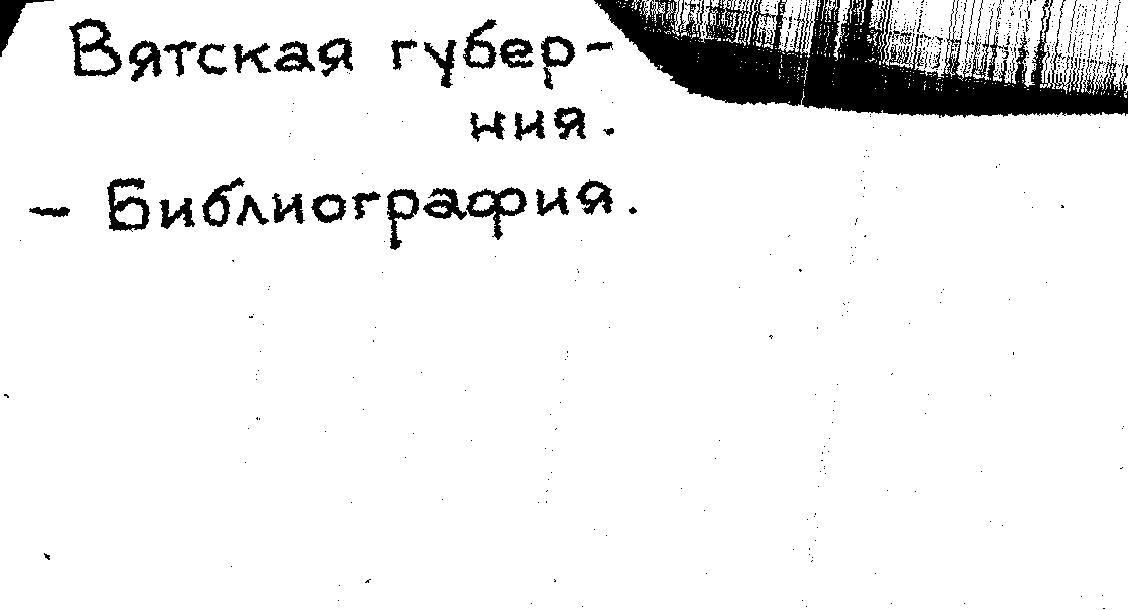 Вятская губер-
ния.
- Библиография.